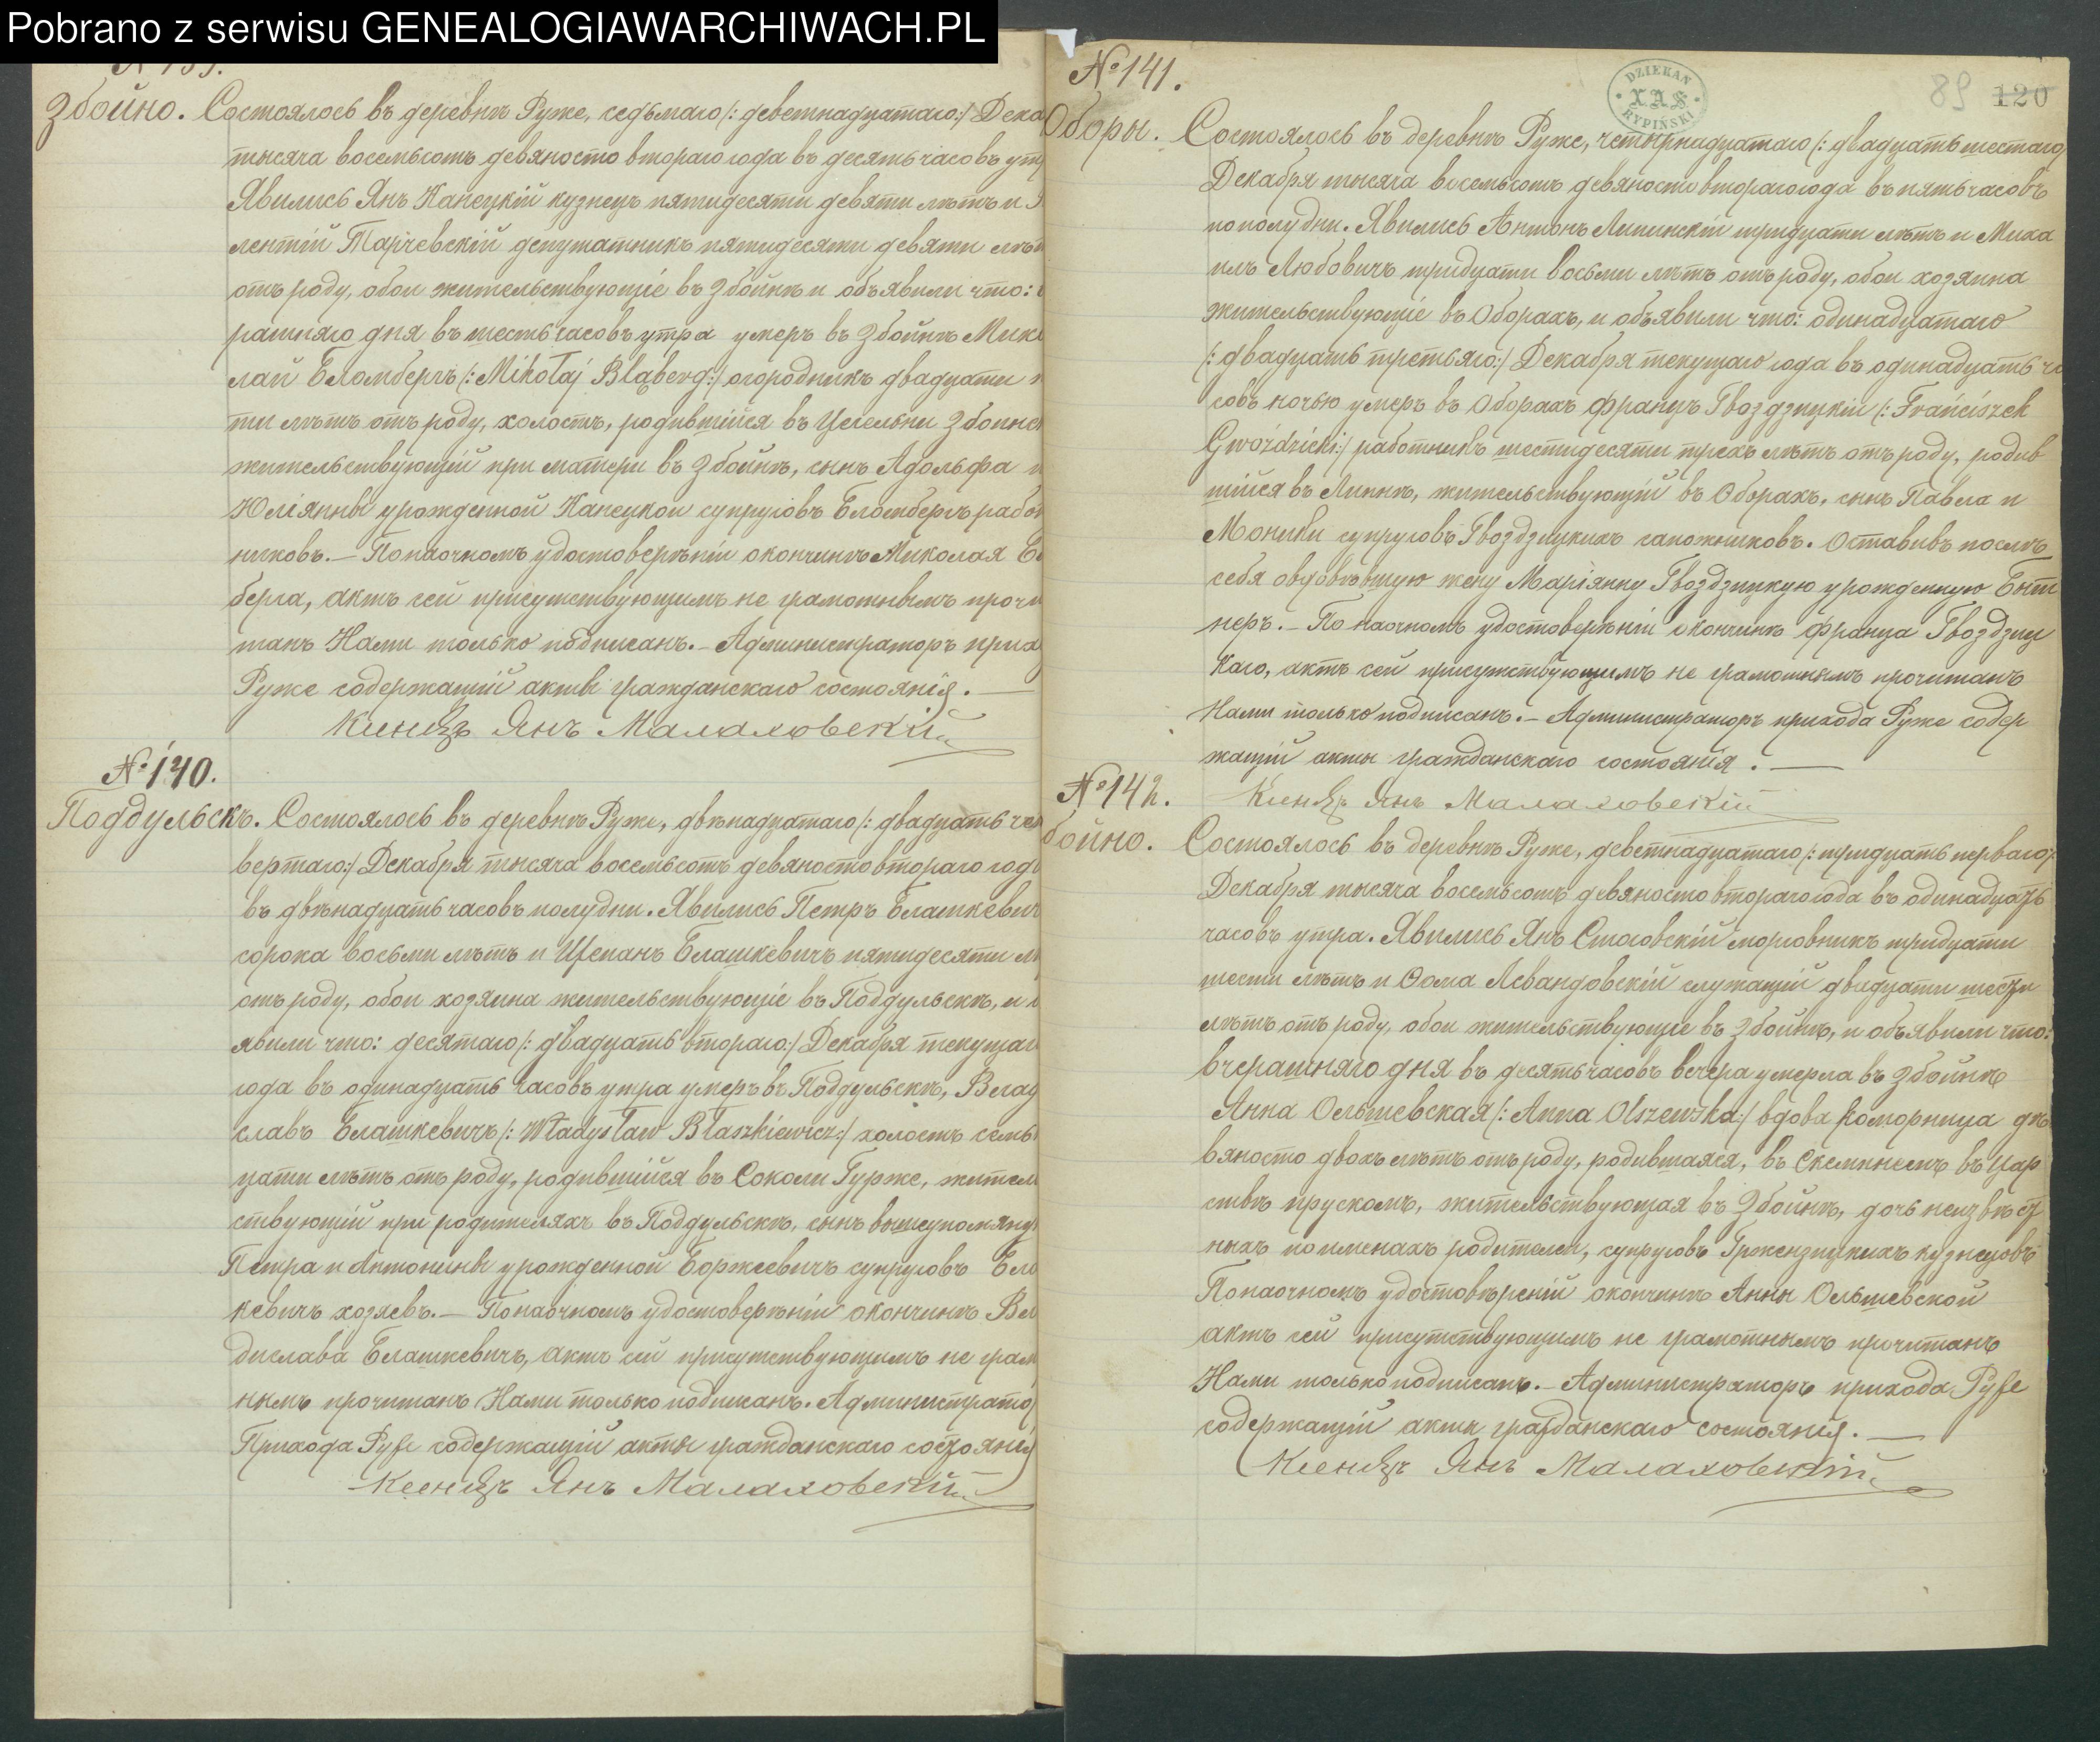 Pobrano z serwisu GENEALOGIAWARCHIWACH.PL
Збойно. Состоялось въ деревнѣ Руже, седьмаго /: девятнадцатаго:/ Дека
тысяча восемьсотъ девяносто втораго года въ десять часовъ утр
Явились Янъ Канецкій кузнецъ пятидесяти девяти лѣтъ и
лентій Тарчевскій депутатникъ пятидесяти девяти лѣ
отъ роду, обои жительствующіе въ Збойнѣ и объявили что:
рашняго дня въ шесть часовъ утра умеръ въ Збойнѣ Мико
лай Бломбергъ /: Mikołaj Bląberg:/ огородникъ двадцати
ти лѣтъ отъ роду, холостъ, родившійся въ Цегельни Збоинс
жительствующій при матери въ Збойнѣ, сынъ Адольфа и
Юліянны урожденной Канецкой супруговъ Бломбергъ рабо
никовъ.— По наочномъ удостоверѣніи окончинѣ Миколая Б
берга, актъ сей присутствующимъ не грамотнымъ прочи
танъ Нами только подписанъ.— Администраторъ прихо
Руже содержащій акты гражданскаго состоянія.—
Ксендзъ Янъ Малаховскій
№ 140.
Поддульскъ. Состоялось въ деревнѣ Руже, двѣнадцатаго /: двадцать чет
вертаго:/ Декабря тысяча восемьсотъ девяносто втораго года
въ двѣнадцать часовъ полудни. Явились Петръ Блашкевич
сорока восьми лѣтъ и Щепанъ Блашкевичъ пятидесяти лѣ
отъ роду, обои хозяина жительствующіе въ Поддульскѣ, и о
явили что: десятаго /: двадцать втораго:/ Декабря текущаго
года въ одинадцать часовъ утра умеръ въ Поддульскѣ, Влад
славъ Блашкевичъ /: Władysław Błaszkiewicz:/ холостъ семь
цати лѣтъ отъ роду, родившійся въ Соколи Гурже, жител
ствующій при родителяхъ въ Поддульскѣ, сынъ вышеупомяну
Петра и Антонины урожденной Боржсевичъ супруговъ Бла
кевичъ хозяевъ.— По наочномъ удостоверѣніи окончинѣ Вла
дислава Блашкевичъ, актъ сей присутствующимъ не грам
нымъ прочитанъ Нами только подписанъ. Администрато
Прихода Руже содержащій акты гражданскаго состоянія
Ксендзъ Янъ Малаховскій
№ 141.
DZIEKAN
X.A.S.
RYPIŃSKI
89 120
Оборы. Состоялось въ деревнѣ Руже, четырнадцатаго /: двадцать шестаго
Декабря тысяча восемьсотъ девяносто втораго года въ пять часовъ
по полудни. Явились Антонъ Липинскій тридцати лѣтъ и Миха
илъ Любовичъ тридцати восьми лѣтъ отъ роду, обои хозяина
жительствующіе въ Оборахъ, и объявили что: одинадцатаго
/: двадцать третьяго:/ Декабря текущаго года въ одинадцать ча
совъ ночью умеръ въ Оборахъ Францъ Гвоздзицкій /: Franciszek
Gwoździcki:/ работникъ шестидесяти трехъ лѣтъ отъ роду, родив
шійся въ Липнѣ, жительствующій въ Оборахъ, сынъ Павла и
Моники супруговъ Гвоздзицкихъ сапожниковъ. Оставивъ послѣ
себя овдовѣвшую жену Маріянну Гвоздзицкую урожденную Бит
неръ.— По наочномъ удостоверѣніи окончинѣ Франца Гвоздзиц
каго, актъ сей присутствующимъ не грамотнымъ прочитанъ
Нами только подписанъ.— Администраторъ прихода Руже содер
жащій акты гражданскаго состоянія.—
Ксендзъ Янъ Малаховскій
№ 142.
бойно. Состоялось въ деревнѣ Руже, девятнадцатаго /: тридцать перваго:/
Декабря тысяча восемьсотъ девяносто втораго года въ одинадцать
часовъ утра. Явились Янъ Смоговскій морговникъ тридцати
шести лѣтъ и Ѳома Левандовскій служащій двадцати шести
лѣтъ отъ роду, обои жительствующіе въ Збойнѣ, и объявили что:
вчерашняго дня въ десять часовъ вечера умерла въ Збойнѣ
Анна Ольшевская /: Anna Olszewska:/ вдова коморница дѣ
вяносто двохъ лѣтъ отъ роду, родившаяся, въ Скемпнемъ въ Цар
ствѣ прускомъ, жительствующая въ Збойнѣ, дочь неизвѣст
ныхъ по именахъ родителей, супруговъ Гржендзицкихъ кузнецовъ
По наочномъ удостовѣреній окончинѣ Анны Ольшевской
актъ сей присутствующимъ не грамотнымъ прочитанъ
Нами только подписанъ.— Администраторъ прихода Руже
содержащій акты гражданскаго состоянія.—
Ксендзъ Янъ Малаховскій